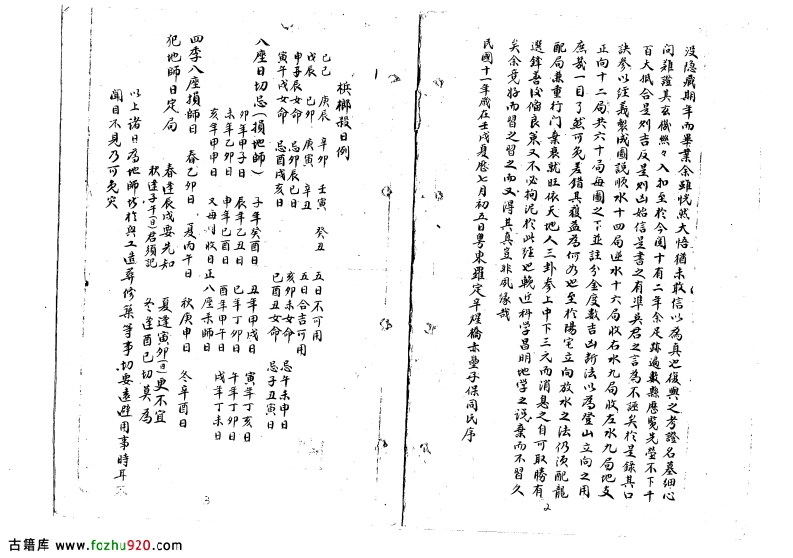 沒隱藏期年而畢業余雖恍然大悟猶未敢信以為真也復與之考證名墓細心
问難證其玄機無々入扣至於今閱十有二年余足跡遍數縣應覽先塋不下千
百大抵合是則吉反是則凶始信是書之有準吳君之言為不誣矣於是錄其口
訣參以經義製成圖說順水十四局逆水十六局收右水九局收左水九局地支
正向十二局共六十局每圖之下並註分金度數吉山新法以為登山立向之用
庶幾一目了然可免差錯其獲益為何如也至於陽宅立向放水之法仍須配龍
配局兼重行門棄衰就旺依天地人三卦參上中下三元而消息之自可取勝有
選鋒善後偏良策又不必拘泥於此經也輓近科学昌明地学之説棄而不習久
矣余竟好而習之習之而又得其真豈非風緣哉
民國十一年歲在壬戌夏應七月初五日粤東羅定辛 橋赤壟子保同氏序
2
梹榔殺日例
己己 庚辰 辛卯 壬寅 癸丑 五日不可用
戊辰 己卯 庚寅 辛丑 五日合吉可用
申子辰女命 忌卯辰巳日 亥卯未女命 忌午未申日
寅午戌女命 忌酉戌亥日 巳酉丑女命 忌子丑寅日
八座日切忌(損地師) 子年癸酉日 丑年甲戌日 寅年丁亥日
卯年甲子日 辰年乙丑日 巳年丁卯日 午年丁卯日
未年乙卯日 申年己酉日 酉年甲午日 戌年丁未日
亥年甲申日 又每月收日正八座去師日
四季八座損師日 春乙卯日 夏丙午日 秋庚申日 冬辛酉日
犯地師日定局 春逢辰戌要先知 夏逢寅卯(日)更不宜
秋逢子午(日)君須記 冬逢酉巳切莫為
以上諸日為地師切於興工造葬修築等事切要遠避用事時耳不
聞目不見乃可免灾
3
古籍库 www.fozhu920.com